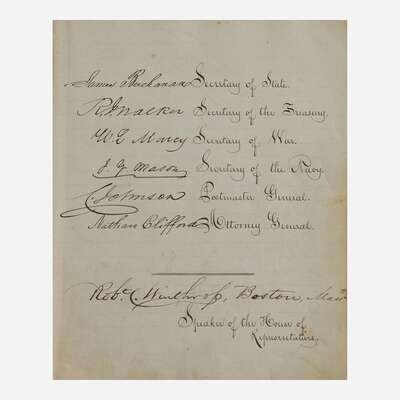 James Buchanan Secretary of State.
R. J. Walker Secretary of the Treasury.
W. L. Marcy Secretary of War.
J. Y. Mason Secretary of the Navy.
C. Johnson Postmaster General.
Nathan Clifford Attorney General.
Robt. C. Winthrop, Boston, Mass
Speaker of the House of
Representatives.